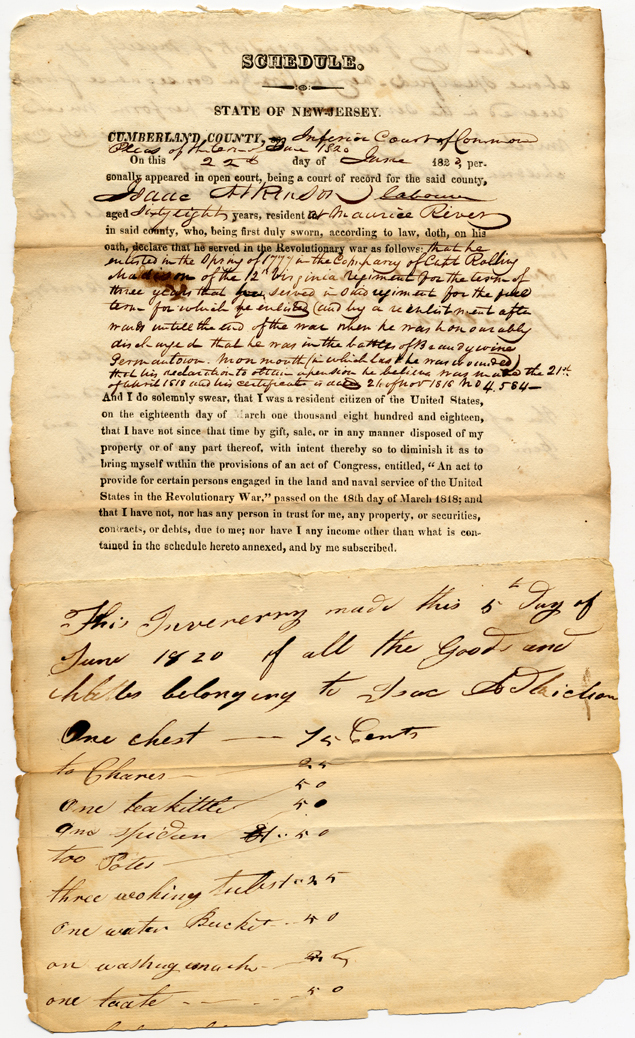 SCHEDULE.
STATE OF NEW-JERSEY.
CUMBERLAND COUNTY, ss Inferior Court of Common
Pleas of the term of June 1820
On this 22d day of June 182 per-
sonally appeared in open court, being a court of record for the said county,
Isaac Atkinson labourer
aged Sixty eight years, resident at Maurice River
in said county, who, being first duly sworn, according to law, doth, on his
oath, declare that he served in the Revolutionary war as follows: that he
enlisted in the Spring of 1777 in the Company of Capt Rolling
Maddison of the 12th Virginia regiment for the term of
three years that he served in said regiment for the full
term for which he enlisted (and by a reenlistment after
wards untill the end of the war when he was honourably
discharged that he was in the battles of Brandywine
Germantown. Monmouth (in which last he was wounded)
that his declaration to obtain a pension he believes was made the 21st
of april 1818 and his certificate is dated 21 of Nov 1818 No 4,584—
And I do solemnly swear, that I was a resident citizen of the United States,
on the eighteenth day of March one thousand eight hundred and eighteen,
that I have not since that time by gift, sale, or in any manner disposed of my
property or of any part thereof, with intent thereby so to diminish it as to
bring myself within the provisions of an act of Congress, entitled, “An act to
provide for certain persons engaged in the land and naval service of the United
States in the Revolutionary War,” passed on the 18th day of March 1818; and
that I have not, nor has any person in trust for me, any property, or securities,
contracts, or debts, due to me; nor have I any income other than what is con-
tained in the schedule hereto annexed, and by me subscribed.
This made this 5th Day of
June 1820 of all the Goods and
belonging to Isac
One chest — 75 Cents
to Chares — 25
One teakittle 50
One spidar 50
too Potes
three tubs 25
one water Bucket 40
on
one 50